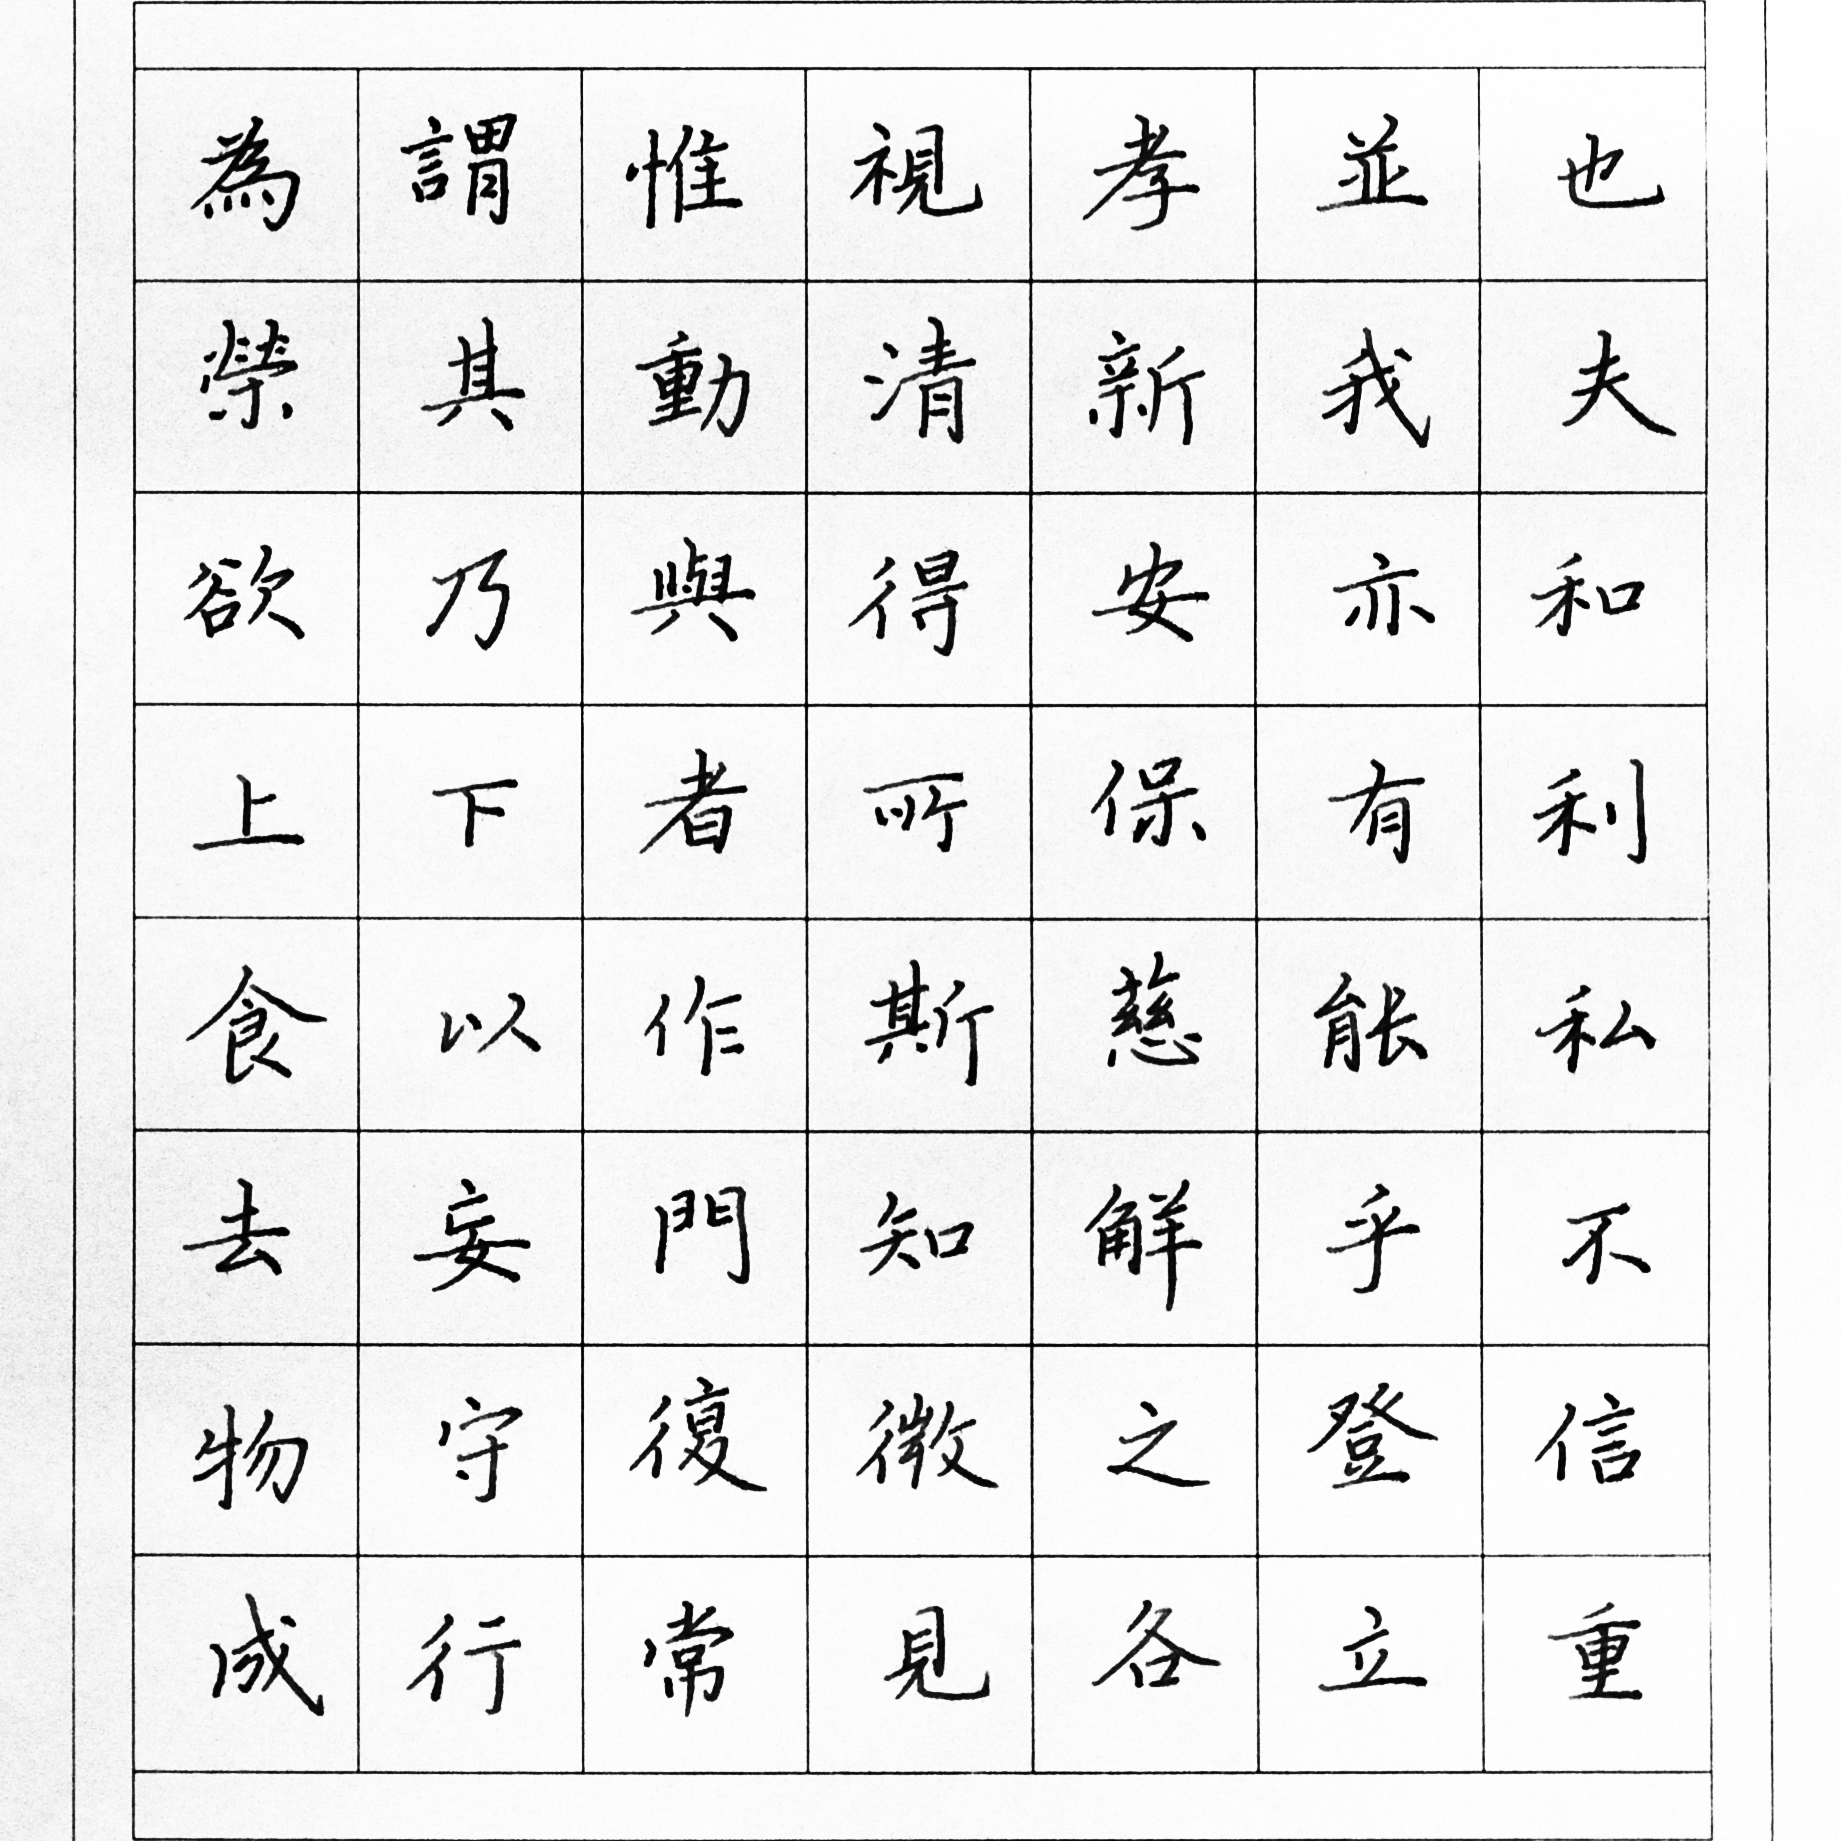 也夫和利私不信重
並我亦有能乎登立
孝新安保慈解之各
視清得所斯知微見
惟動與者作門復常
謂其乃下以妄守行
為榮欲上食去物成